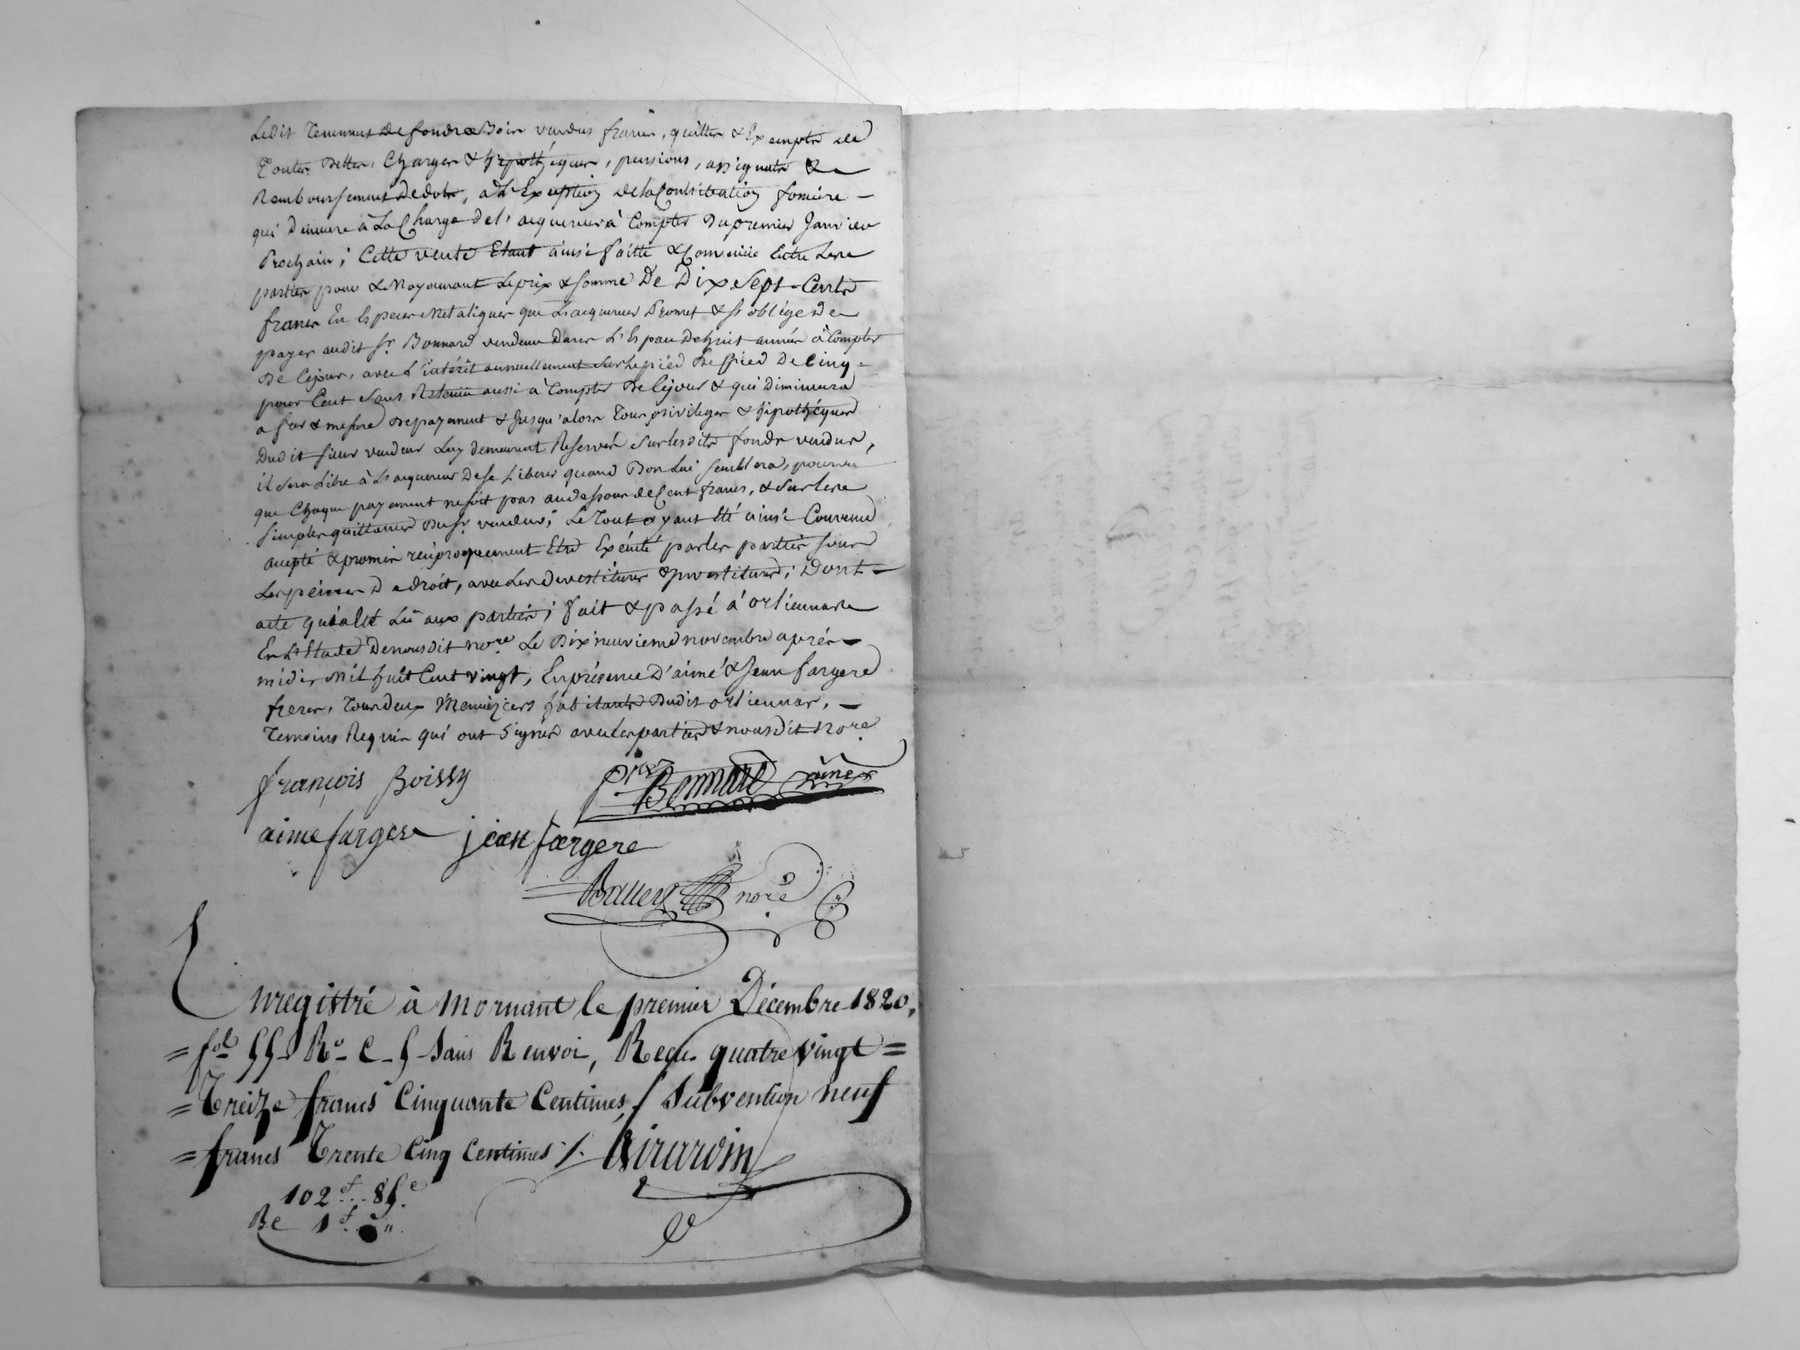 Ledit Tennement de fondz Bois vendus francs, quitter & Exempts de
Toutes dettes, Charges & hipothèques, pensions, assignats &
Remboursement de dote, à L'Exeption de la Contribution fonciere
qui demeure à La Charge de l'acquereur à Compter du premier Janvier
Prochain; Cette vente Etant ainsi faitte & Convenüe Entre Les
parties pour & Moyennant Le prix & somme De Dix Sept Cents
francs En Especes Métaliques que L'acquereur Promet & s'oblige de
payer audit Sr. Bonnard vendeur dans L'Espace de huit années à Compter
De Cejour, avec L'intérêt annuellement sur Le pied De Cinq
pour Cent Sans Retenüe aussi à Compter De Cejour & qui Diminuera
a fur & mesure de payement & Jusqu'alors Tous privileges & hipothèques
Dudit sieur vendeur Luy demeurent Reservés Sur lesdits fonds vendus,
il Sera Libre à L'acquereur De se Liberer quand Bon Lui Semblera, pourvu
que Chaque payement ne soit pas au dessous de Cent francs, & Sur Les
Simples quittances du Sr. vendeur; Le Tout ayant Eté ainsi Convenu
accepté & promis reciproquement Etre Exécuté par les parties sous
Les peines De droit, avec Les Devestitures & Investitures; Dont
acte qui a Eté Lû aux parties; fait & passé à Orliennas
En L'Etude De nousdit nore. Le Dix neuvieme novembre aprés
midi Mil huit Cent vingt, En présence D'aimé & Jean fargere
freres, Tous deux Menuiziers habitants Dudit orliennas,
Temoins Requis qui ont Signés avec Les parties & nousdit nore
françois Boissy
Bonnard ainé
aime fargere jean fargere
nore
Enregistré à Mornant le premier Décembre 1820,
fol 55 Ro C 5 Sans Renvoi, Reçu quatre vingt
Treize francs Cinquante Centimes, / Subvention neuf
francs Trente Cinq Centimes /. Girardin
102 f. 85 c
Re 1 f. "